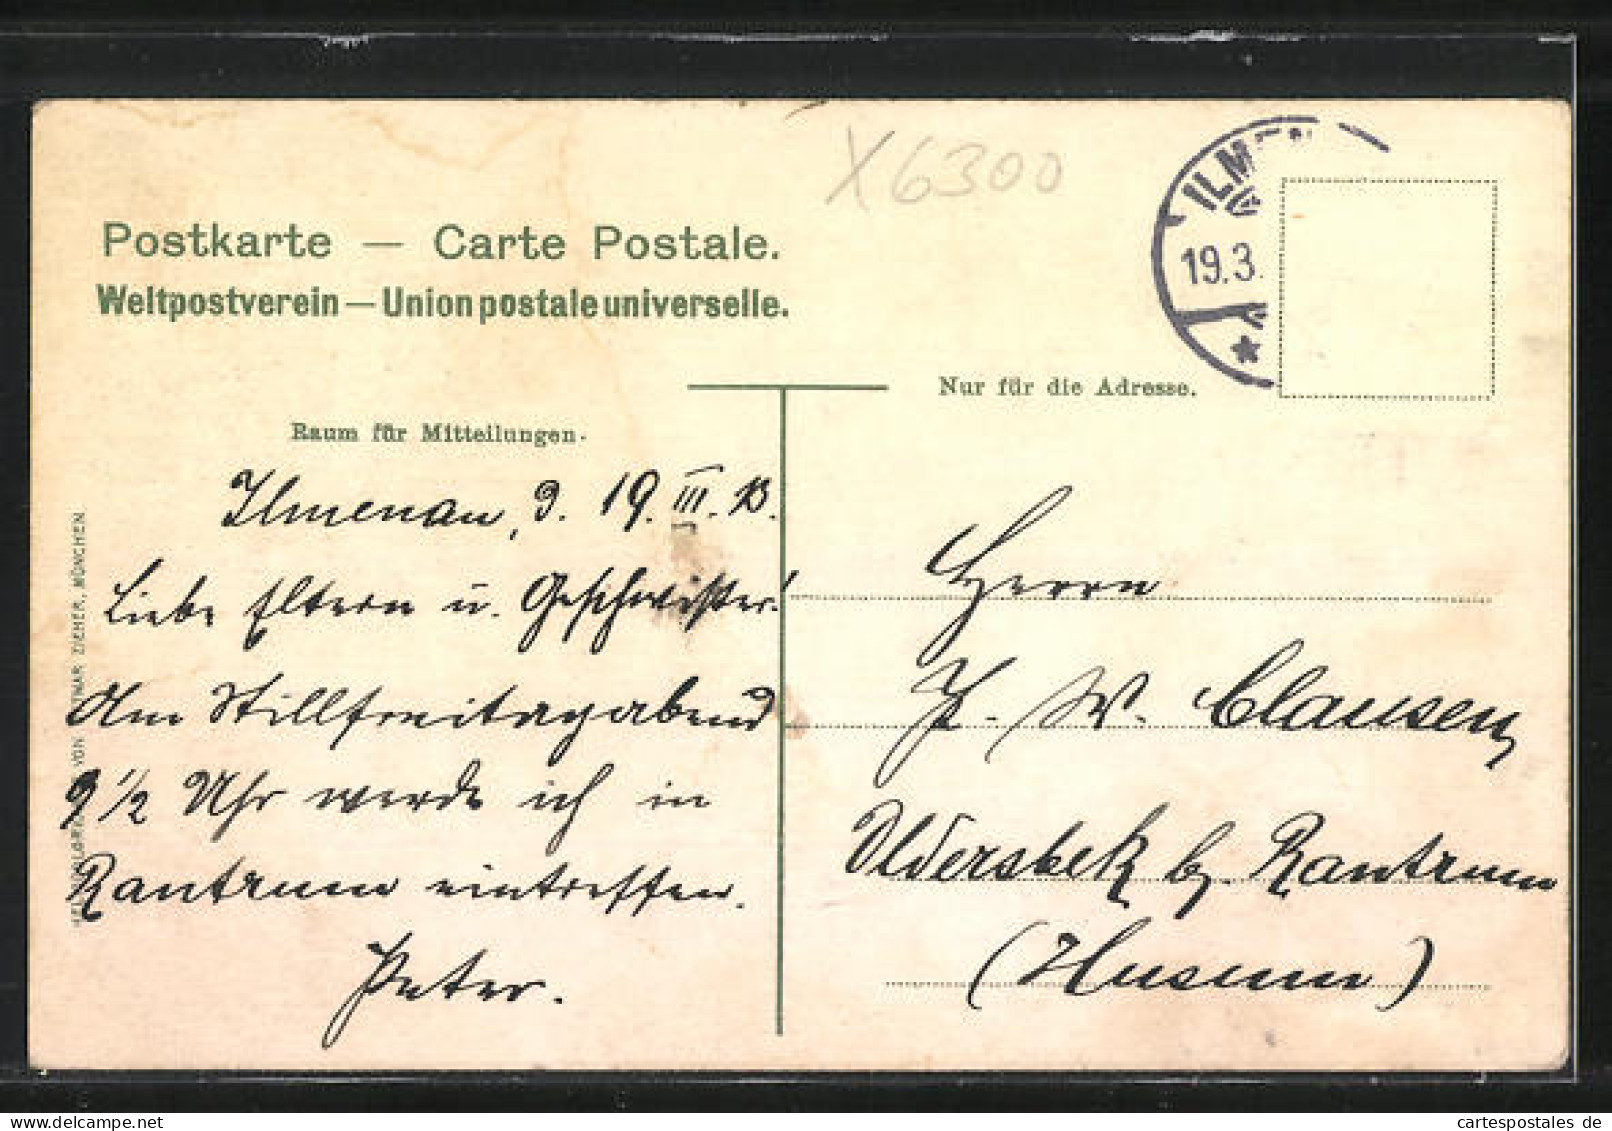 X6300
ILMEN
19.3.
Postkarte — Carte Postale.
Weltpostverein — Union postale universelle.
Nur für die Adresse.
Raum für Mitteilungen.
Ilmenau, d. 19. III. 13.
Liebe Eltern u. Geschwister!
Am Stillfreitagabend
9 1/2 Uhr werde ich in
Rantrum eintreffen.
Peter.
Herrn
W. Clausen
Oldersbek b. Rantrum
(Husum)
VON OTTMAR ZIEHER, MÜNCHEN
cartespostales de